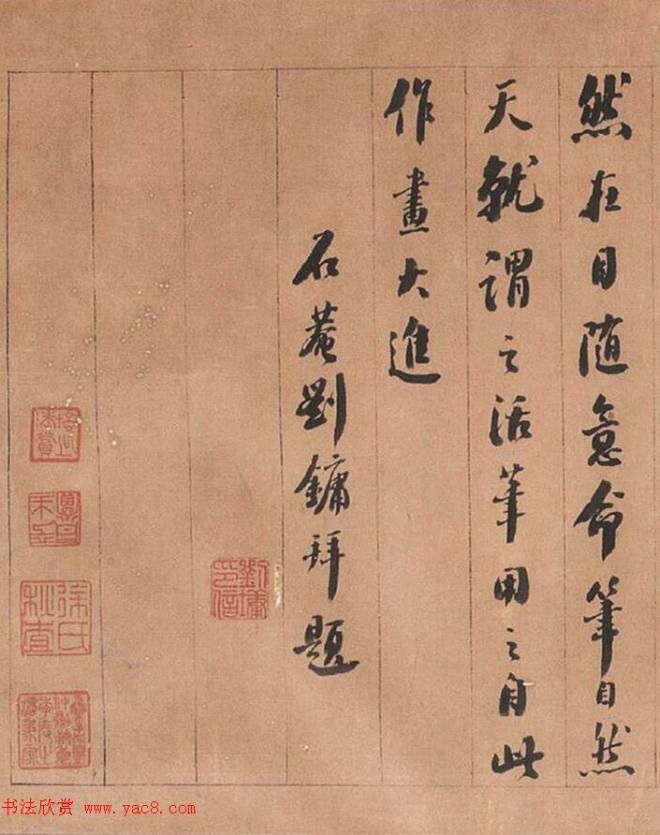 然在目随意命筆自然
天就謂之活筆用之自此
作畫大進
石菴劉鏞拜題
劉墉印信
书法欣赏 www.yac8.com